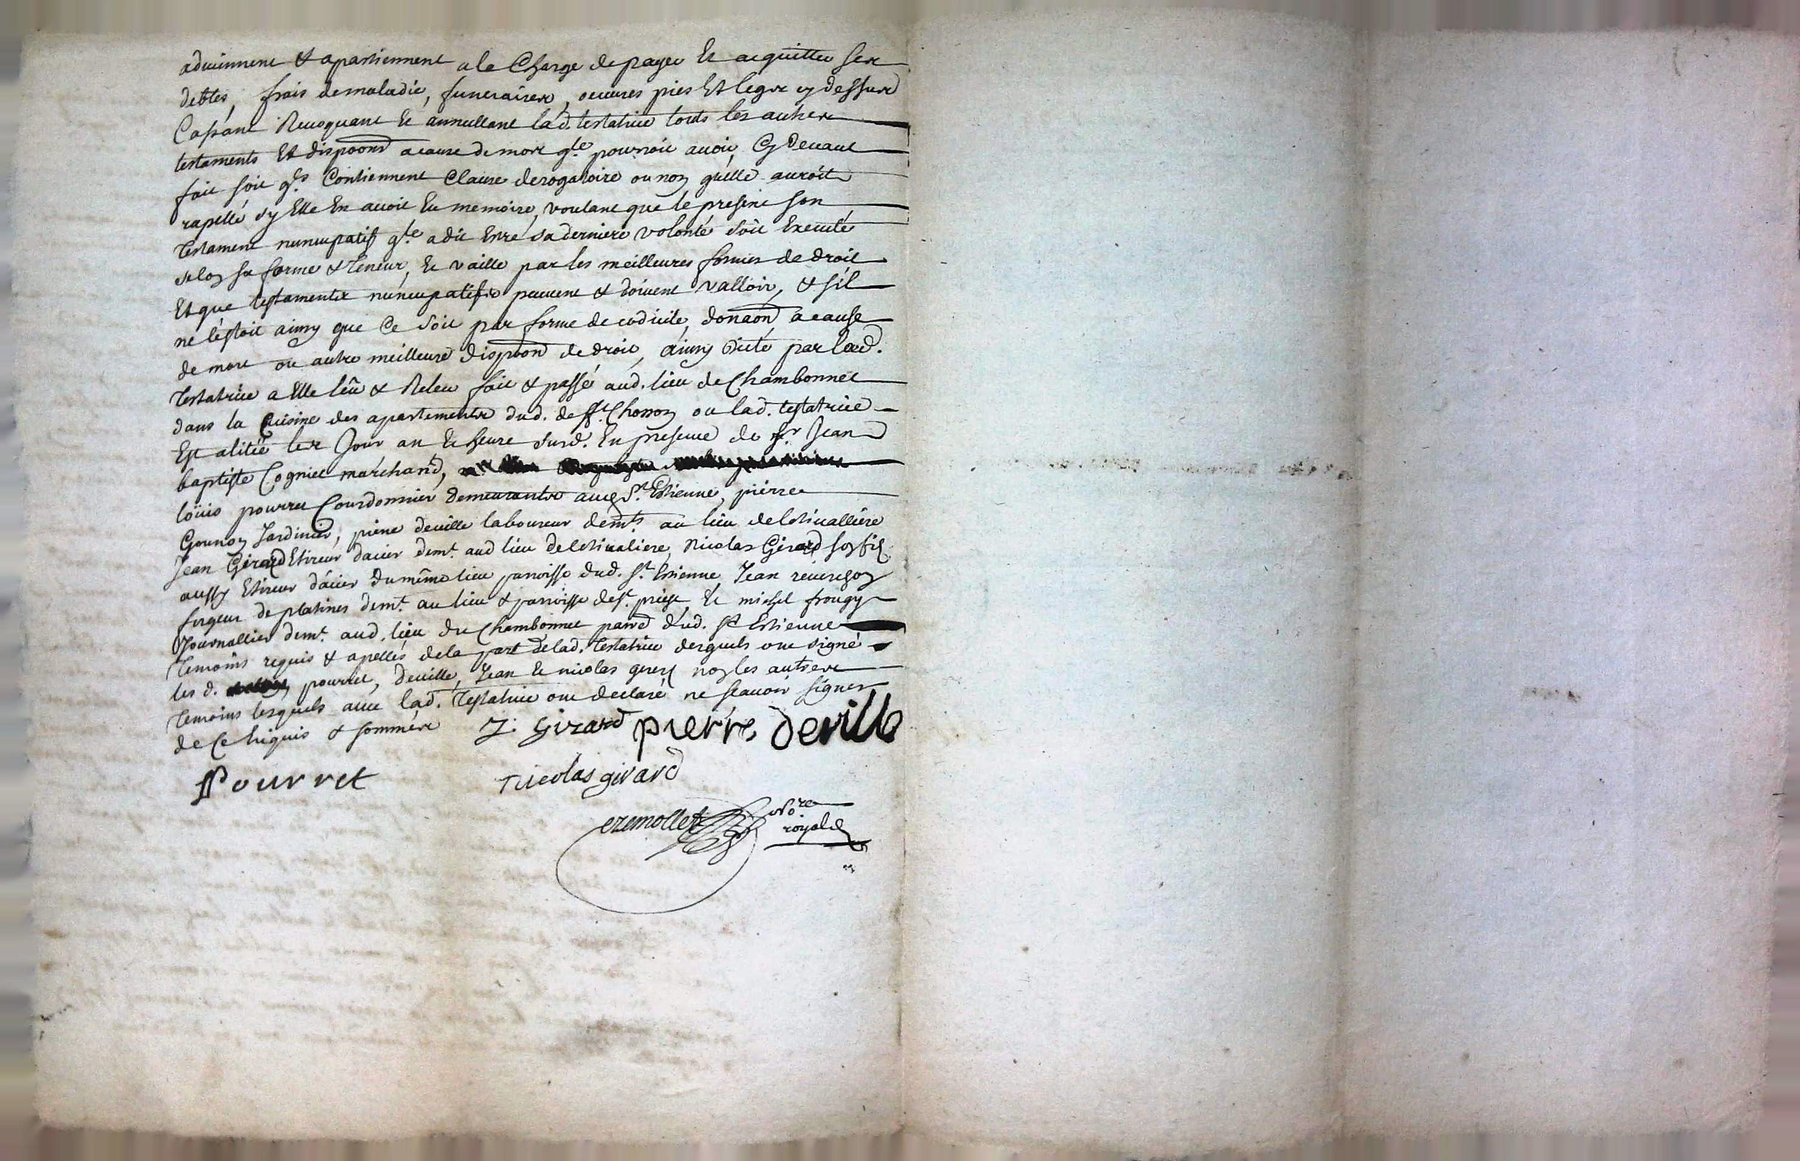 adviennent & apartiennent a la Charge de payer Et acquitter ses
debtes, frais de maladie, funeraires, oeuvres pies Et legs cy dessus
Cassant Revoquant Et annullant lad. testatrice touts les autres
testaments Et dispoōns a cause de mort qle pourroit avoir Cy Devant
fait soit qls Contiennent Clause derogatoire ou non qu'elle auroit
rapellé sy Elle En avoit Eu memoire, voulant que le present son
Testament nuncupatif qle a dit Etre sa derniere volonté soit Executé
selon sa forme & teneur, Et vaille par les meilleures formes de droit
Et que testaments nuncupatifs peuvent & doivent valloir, & s'il
ne l'estoit ainsy que Ce soit par forme de codicile, donaōn a cause
de mort ou autre meilleure dispoōn de droit, ainsy dicté par lad.
Testatrice a Elle leû & Releu fait & passé aud. lieu de Chambonnet
dans la Cuisine des apartements dud. de ou lad. testatrice
Est alitée les Jour an Et heure susd. En presence de sr Jean
baptiste Cogniet marchand,
loüis pourret Courdonnier demeurants aud St. Estienne, pierre
Gounon Jardinier, pierre deville laboureur demts. au lieu de
Jean Girard Etireur dacier demt. aud lieu de Nicolas Girard son fils
aussy Etireur d'acier du même lieu parroisse dud. St. Estienne Jean
forgeur de platines demt. au lieu & parroisse de St. priest Et michel frougy
Journallier demt. aud. lieu du Chambonnet parrd dud. St Estienne
Temoins requis & apellés de la part de lad. Testatrice desquels ont signé
les d. pourret, deville, Jean Et nicolas non les autres
Temoins lesquels avec lad. Testatrice ont declaré ne scavoir signer
de Ce Enquis & sommés
J. Girard pierre deville
Pourret nicolas girard
ezemollet Nore
royal